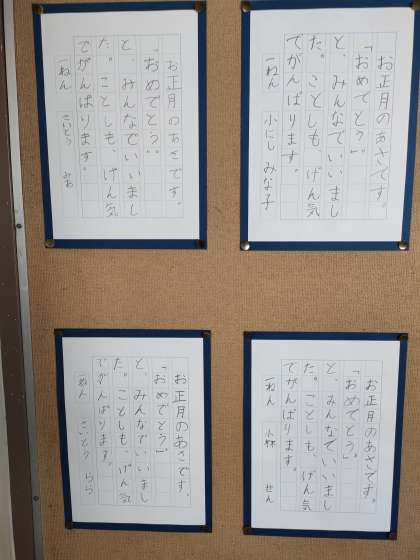 お正月のあさです。
「おめでとう」
と、みんなでいいまし
た。ことしも、げん気
でがんばります。
一ねん 小にし みな子
お正月のあさです。
「おめでとう」
と、みんなでいいまし
た。ことしも、げん気
でがんばります。
一ねん さいとう みお
お正月のあさです。
「おめでとう」
と、みんなでいいまし
た。ことしも、げん気
でがんばります。
一ねん 小林 せん
お正月のあさです。
「おめでとう」
と、みんなでいいまし
た。ことしも、げん気
でがんばります。
一ねん さいとう らら